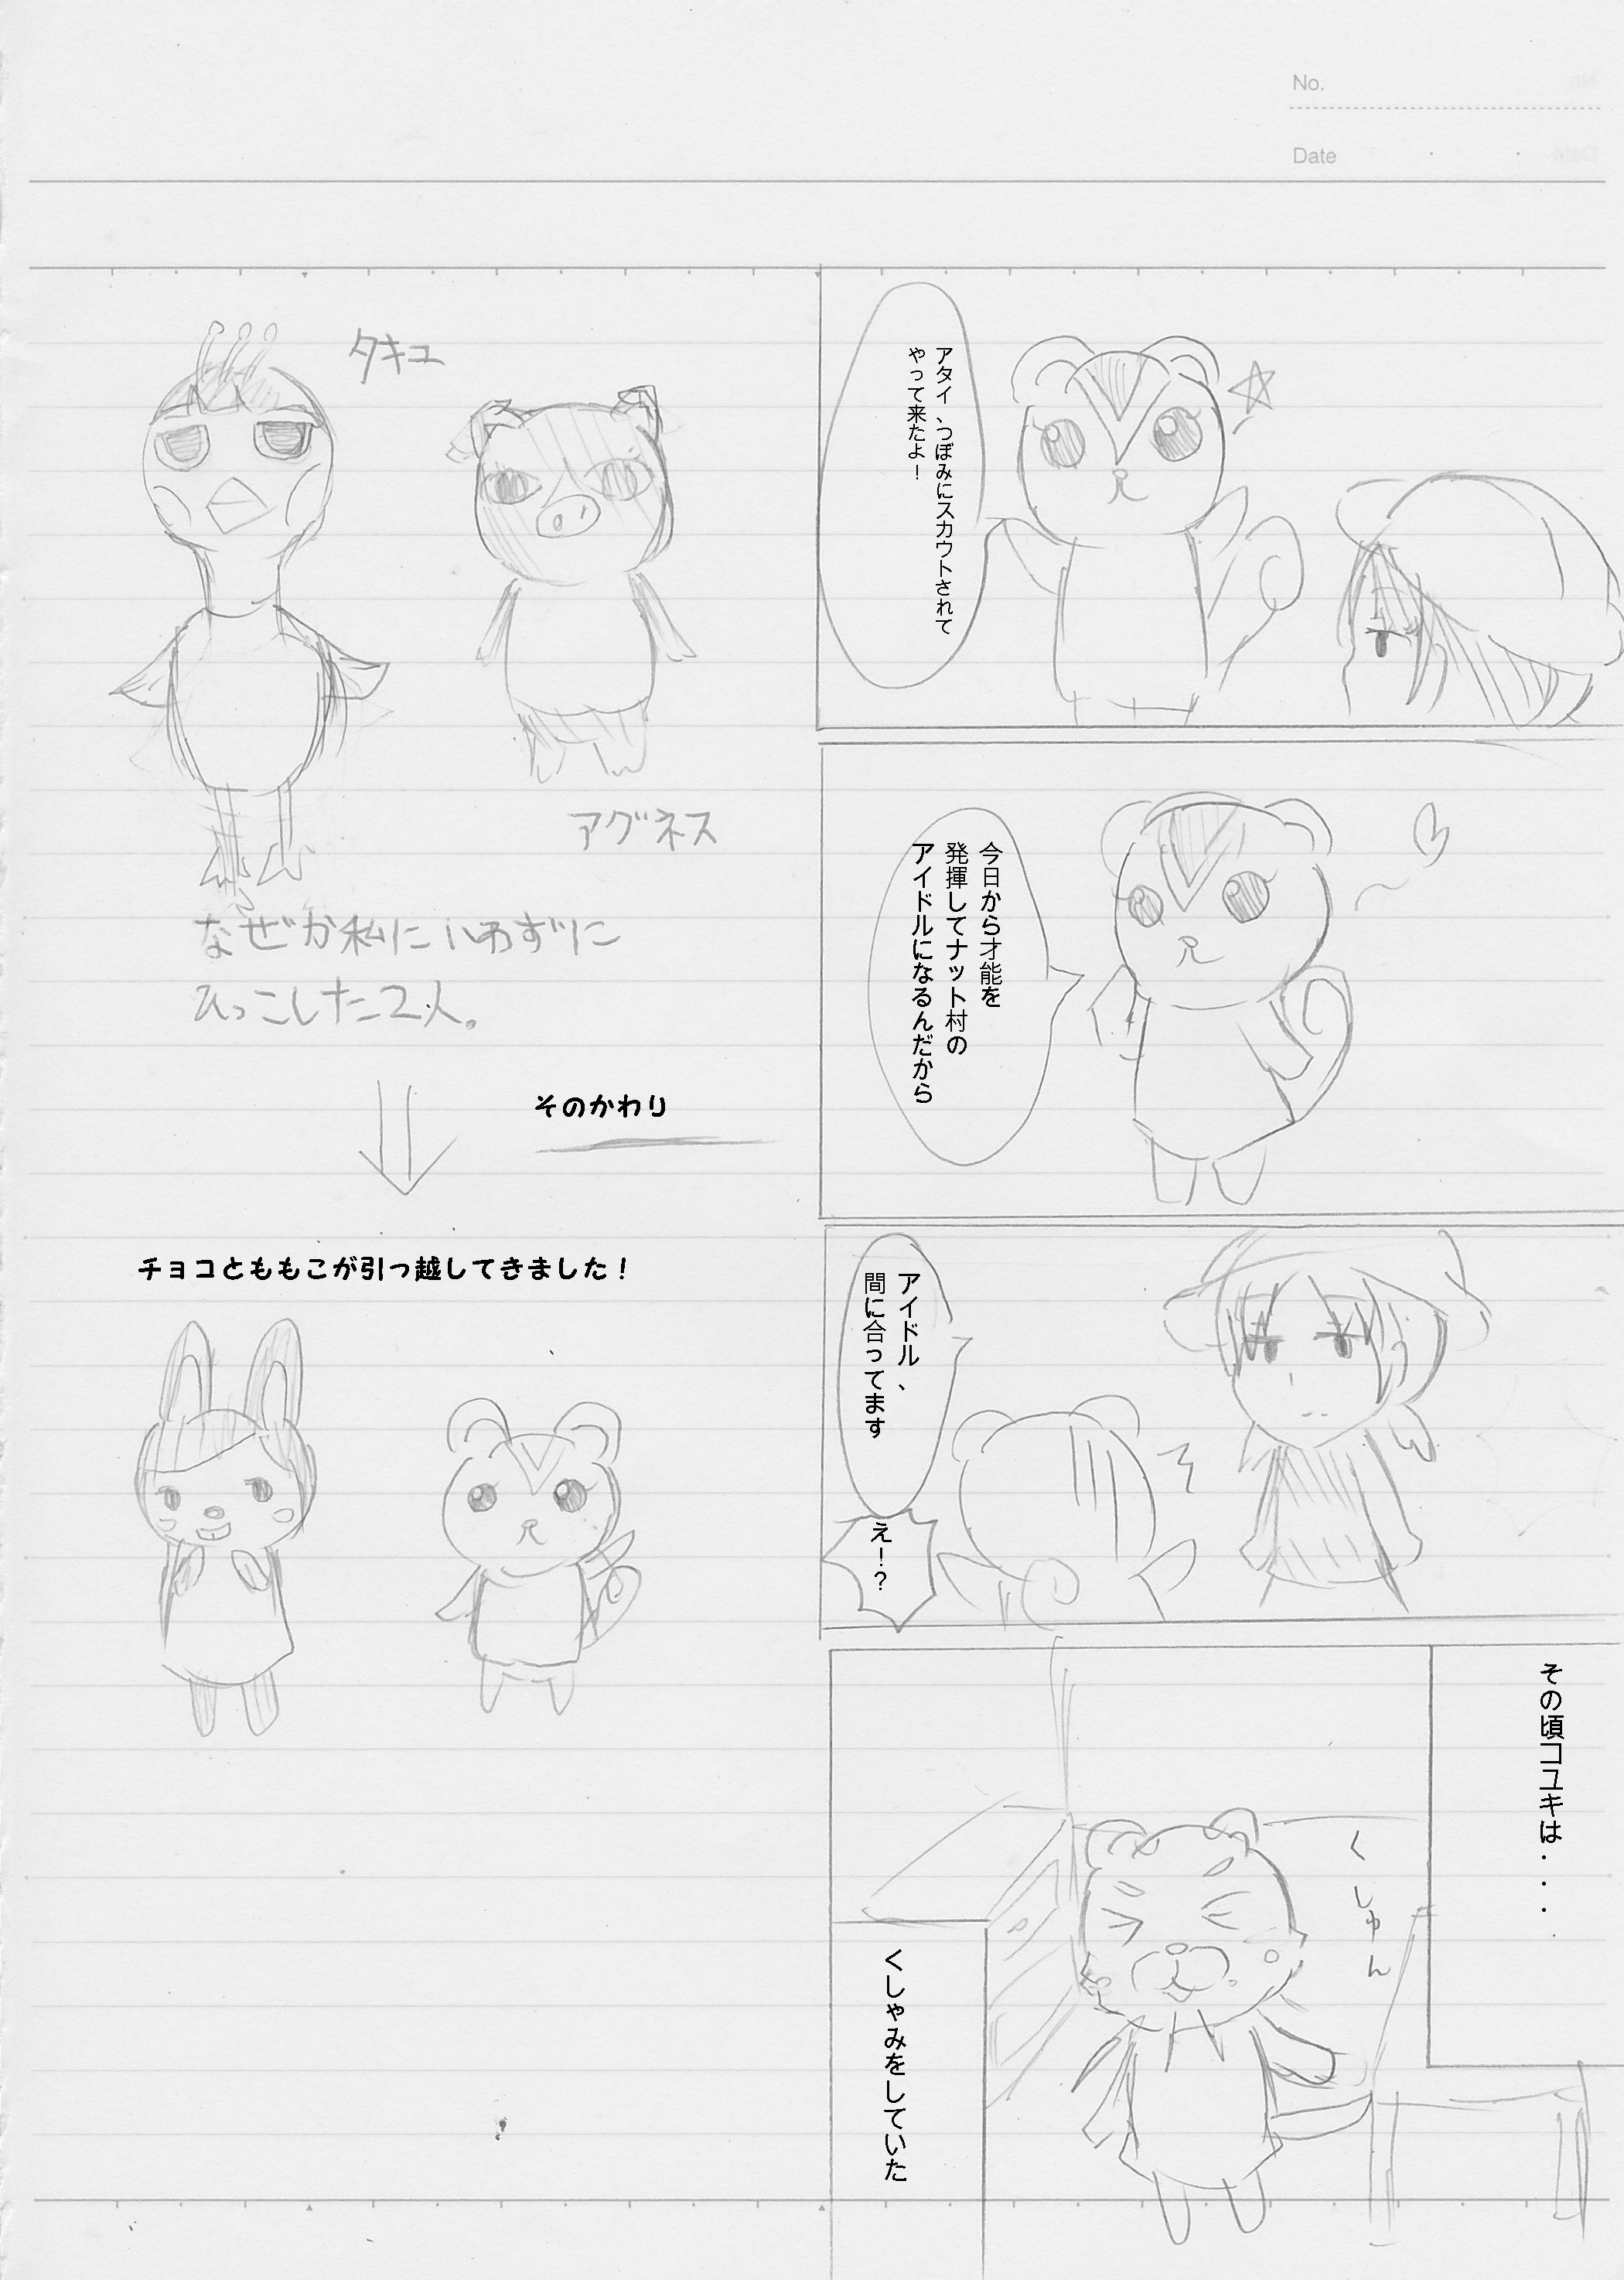 No.
Date
アタイ、つぼみにスカウトされて
やって来たよ！
今日から才能を
発揮してナット村の
アイドルになるんだから
アイドル、
間に合ってます
え！？
その頃コユキは・・・
くしゅん
くしゃみをしていた
タキユ
アグネス
なぜか私にいわずに
ひっこした2人。
そのかわり
チョコとももこが引っ越してきました！